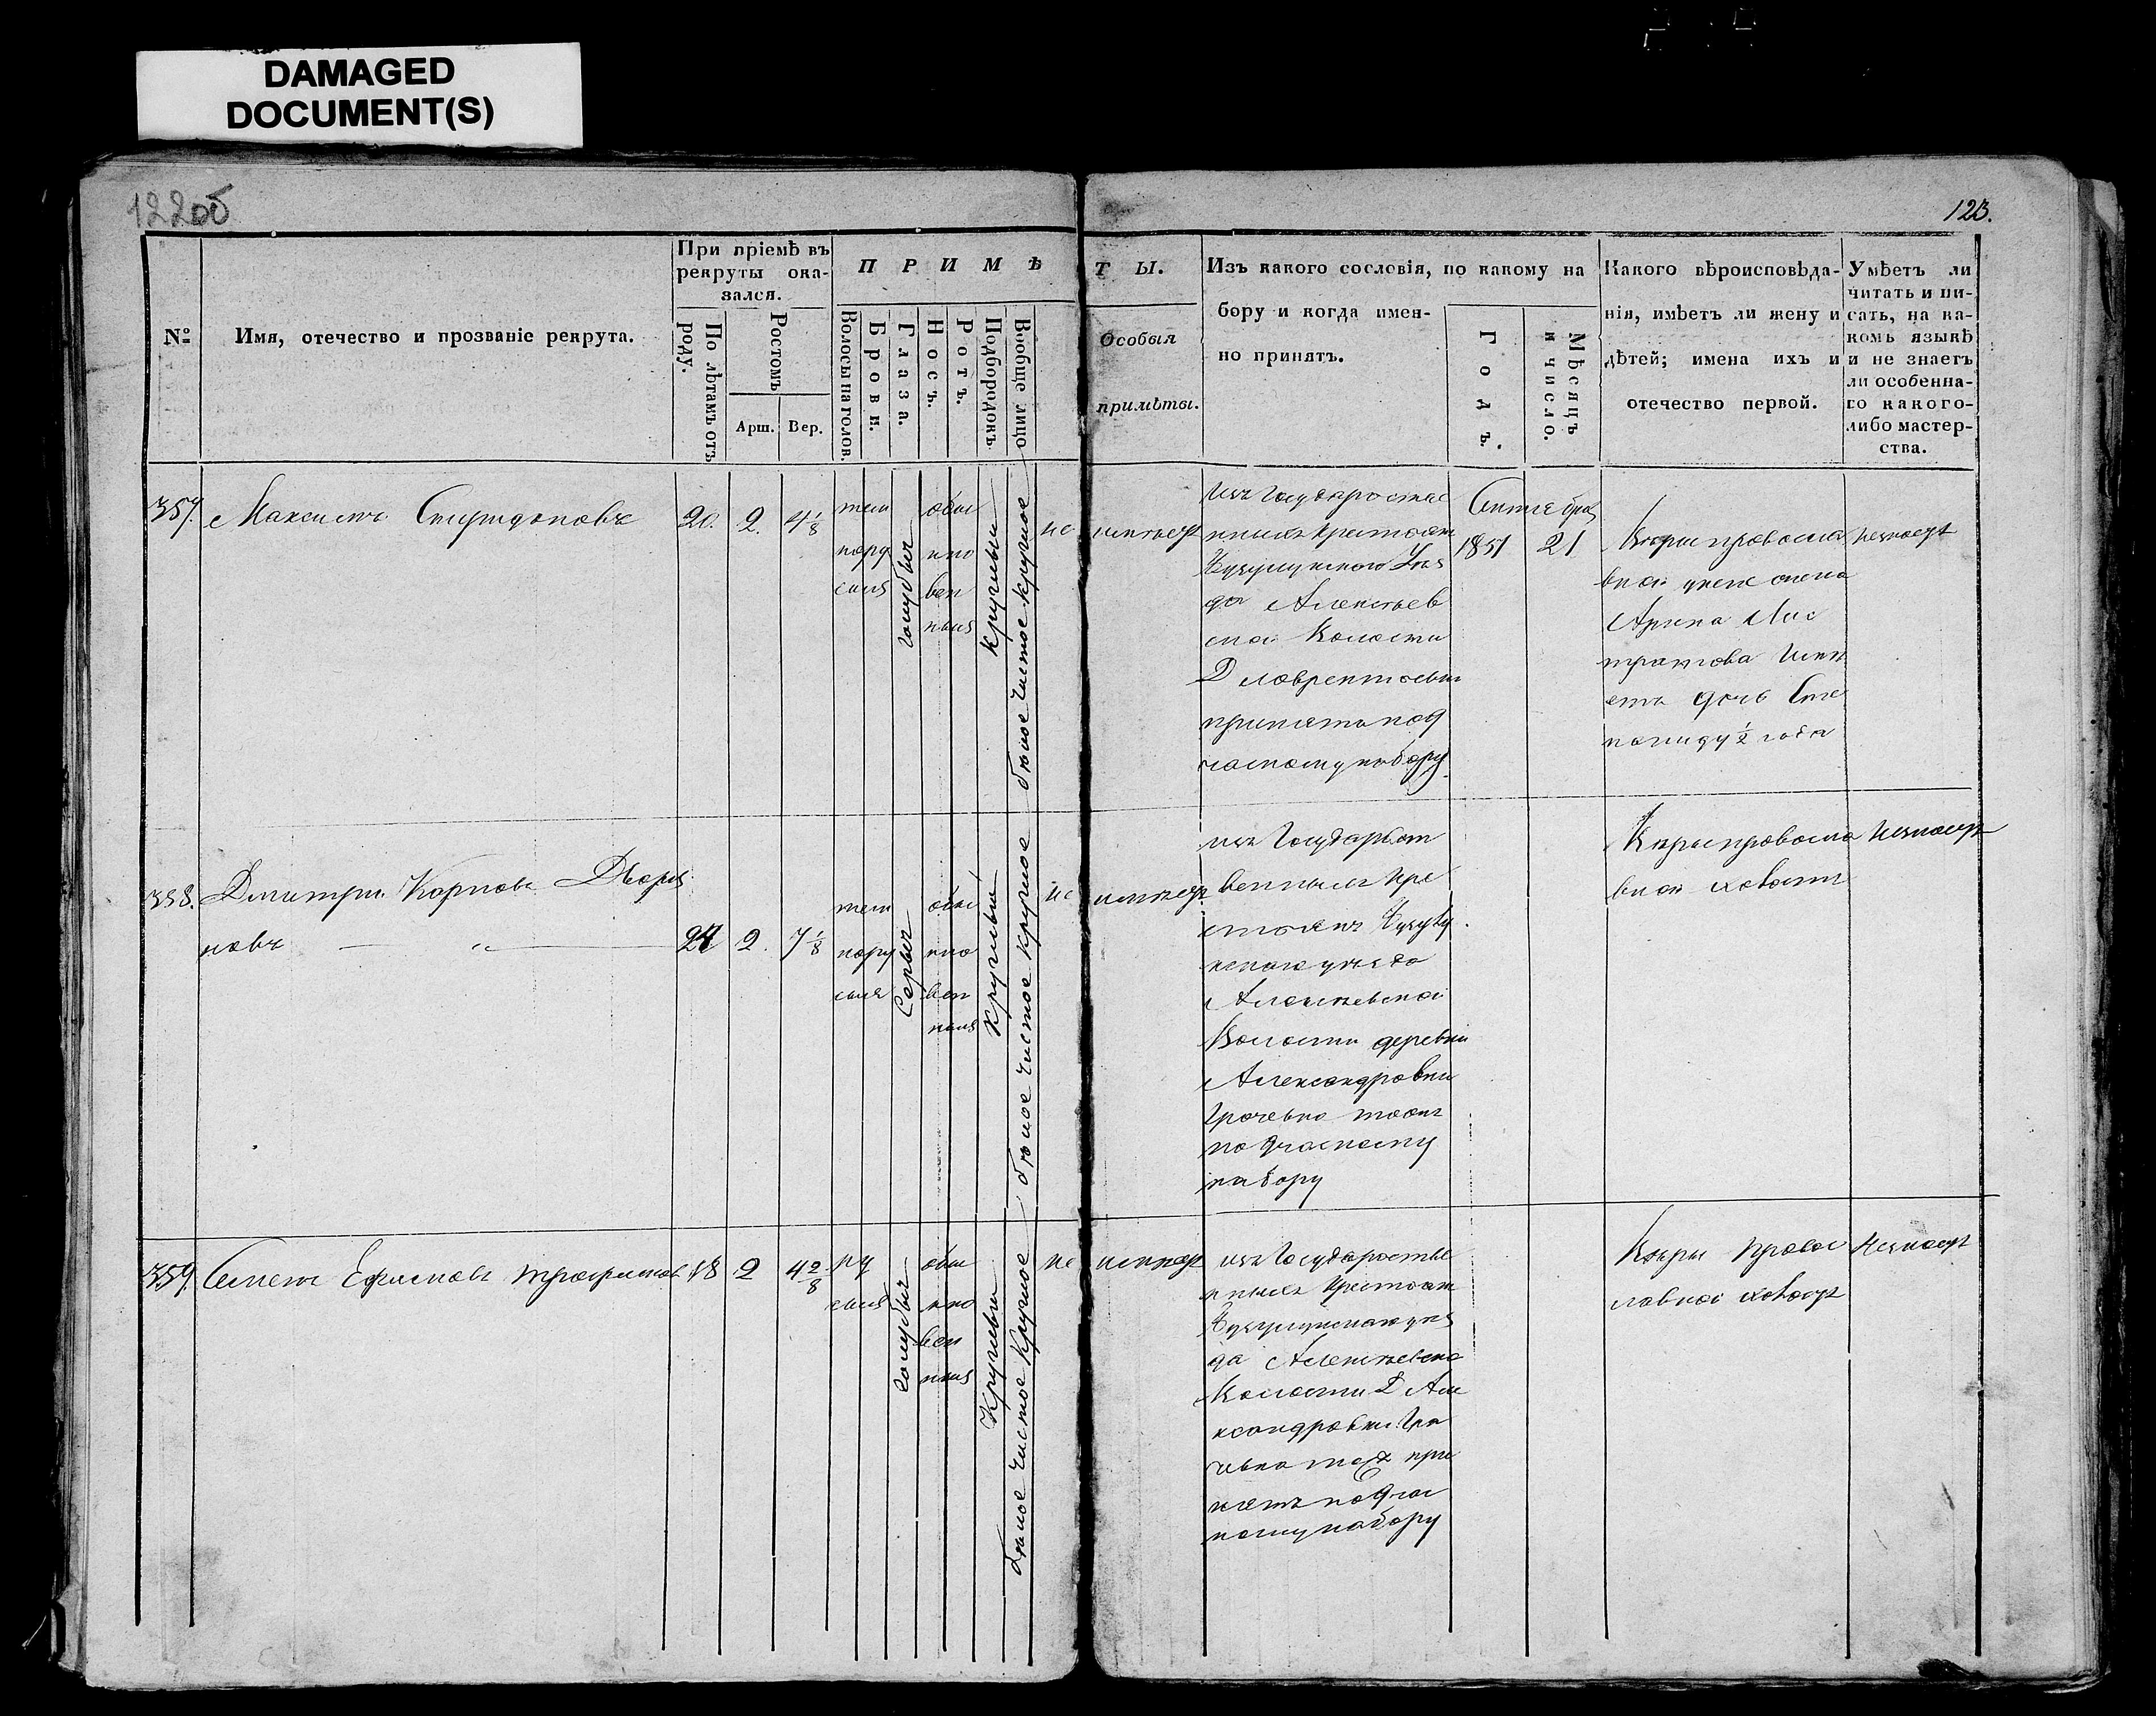 DAMAGED
DOCUMENT(S)
122об
123.
№
Имя, отечество и прозваніе рекрута.
При пріемѣ въ
рекруты ока-
зался.
По лѣтамъ отъ
роду.
Ростомъ
Арш.
Вер.
ПРИМѢ
Волосы на голов.
Брови.
Глаза.
Носъ.
Ротъ.
Подбородокъ
Вообще лицо
ТЫ.
Особыя
примѣты.
Изъ какого сословія, по какому на
бору и когда имен-
но принятъ.
Годъ.
Мѣсяцъ
и число.
Какого вѣроисповѣда-
нія, имѣетъ ли жену и
дѣтей; имена ихъ и
отечество первой.
Умѣетъ ли
читать и пи-
сать, на ка-
комъ языкѣ
и не знаетъ
ли особенна-
го какого-
либо мастер-
ства.
357.
Максимъ
20.
2.
4 1/8
темн
норус
сыя
голубыя
обык
нно
вен
ныя
круглый
бѣлое чистое круглое
не
имѣетъ
изъ Государстве
нныхъ крестьянъ
Бузулукского Уѣз
да Алексѣев
ской Волости
Д Лаврентьевки
принятъ под
часному набору
Сентября
1851
21
Вѣры православ
вной женѣ
Арина
Имѣ
етъ дочь Сте
пониду 1/2 года
незнаетъ
358.
Дмитрій Карповъ Дворя
новъ
24
2.
7 1/8
темн
нору
сыя
Серыя
обык
нно
вен
ныя
Круглый
бѣлое чистое круглое
не
имѣетъ
изъ Государст
венныхъ кре
стьянъ Бузулу
нского уѣзда
Алексѣевской
Волости деревни
Александровки
Грачевка тожъ
по Дчасному
набору
Вѣры православ
вной холостъ
незнаетъ
359.
Семенъ Ефимовъ Трофимов
18
2
4 2/8
ру
сыя
голубыя
обык
нно
вен
ныя
Круглый
бѣлое чистое круглое
не
имѣетъ
изъ Государстве
нныхъ крестьянъ
Бузулукского уѣз
да Алексѣевско
Волости Д Але
ксандровки Гра
чевка тожъ при
нятъ подчас
ному набору
Вѣры Правос
лавной холостъ
Незнаетъ